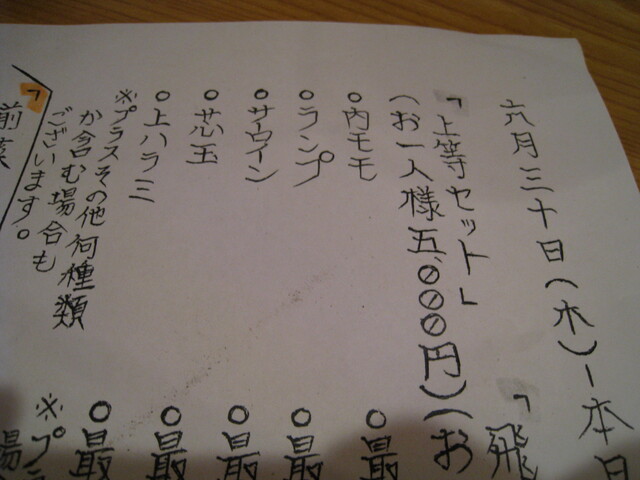 六月三十日(木)ー本日
「上等セット」
(お一人様五、000円)(お
「飛
○内モモ
○ランプ
○サーロイン
○芯玉
○上ハラミ
※プラスその他何種類
か含む場合も
ございます。
○最
○最
○最
○最
○最
※プ
場
「前菜